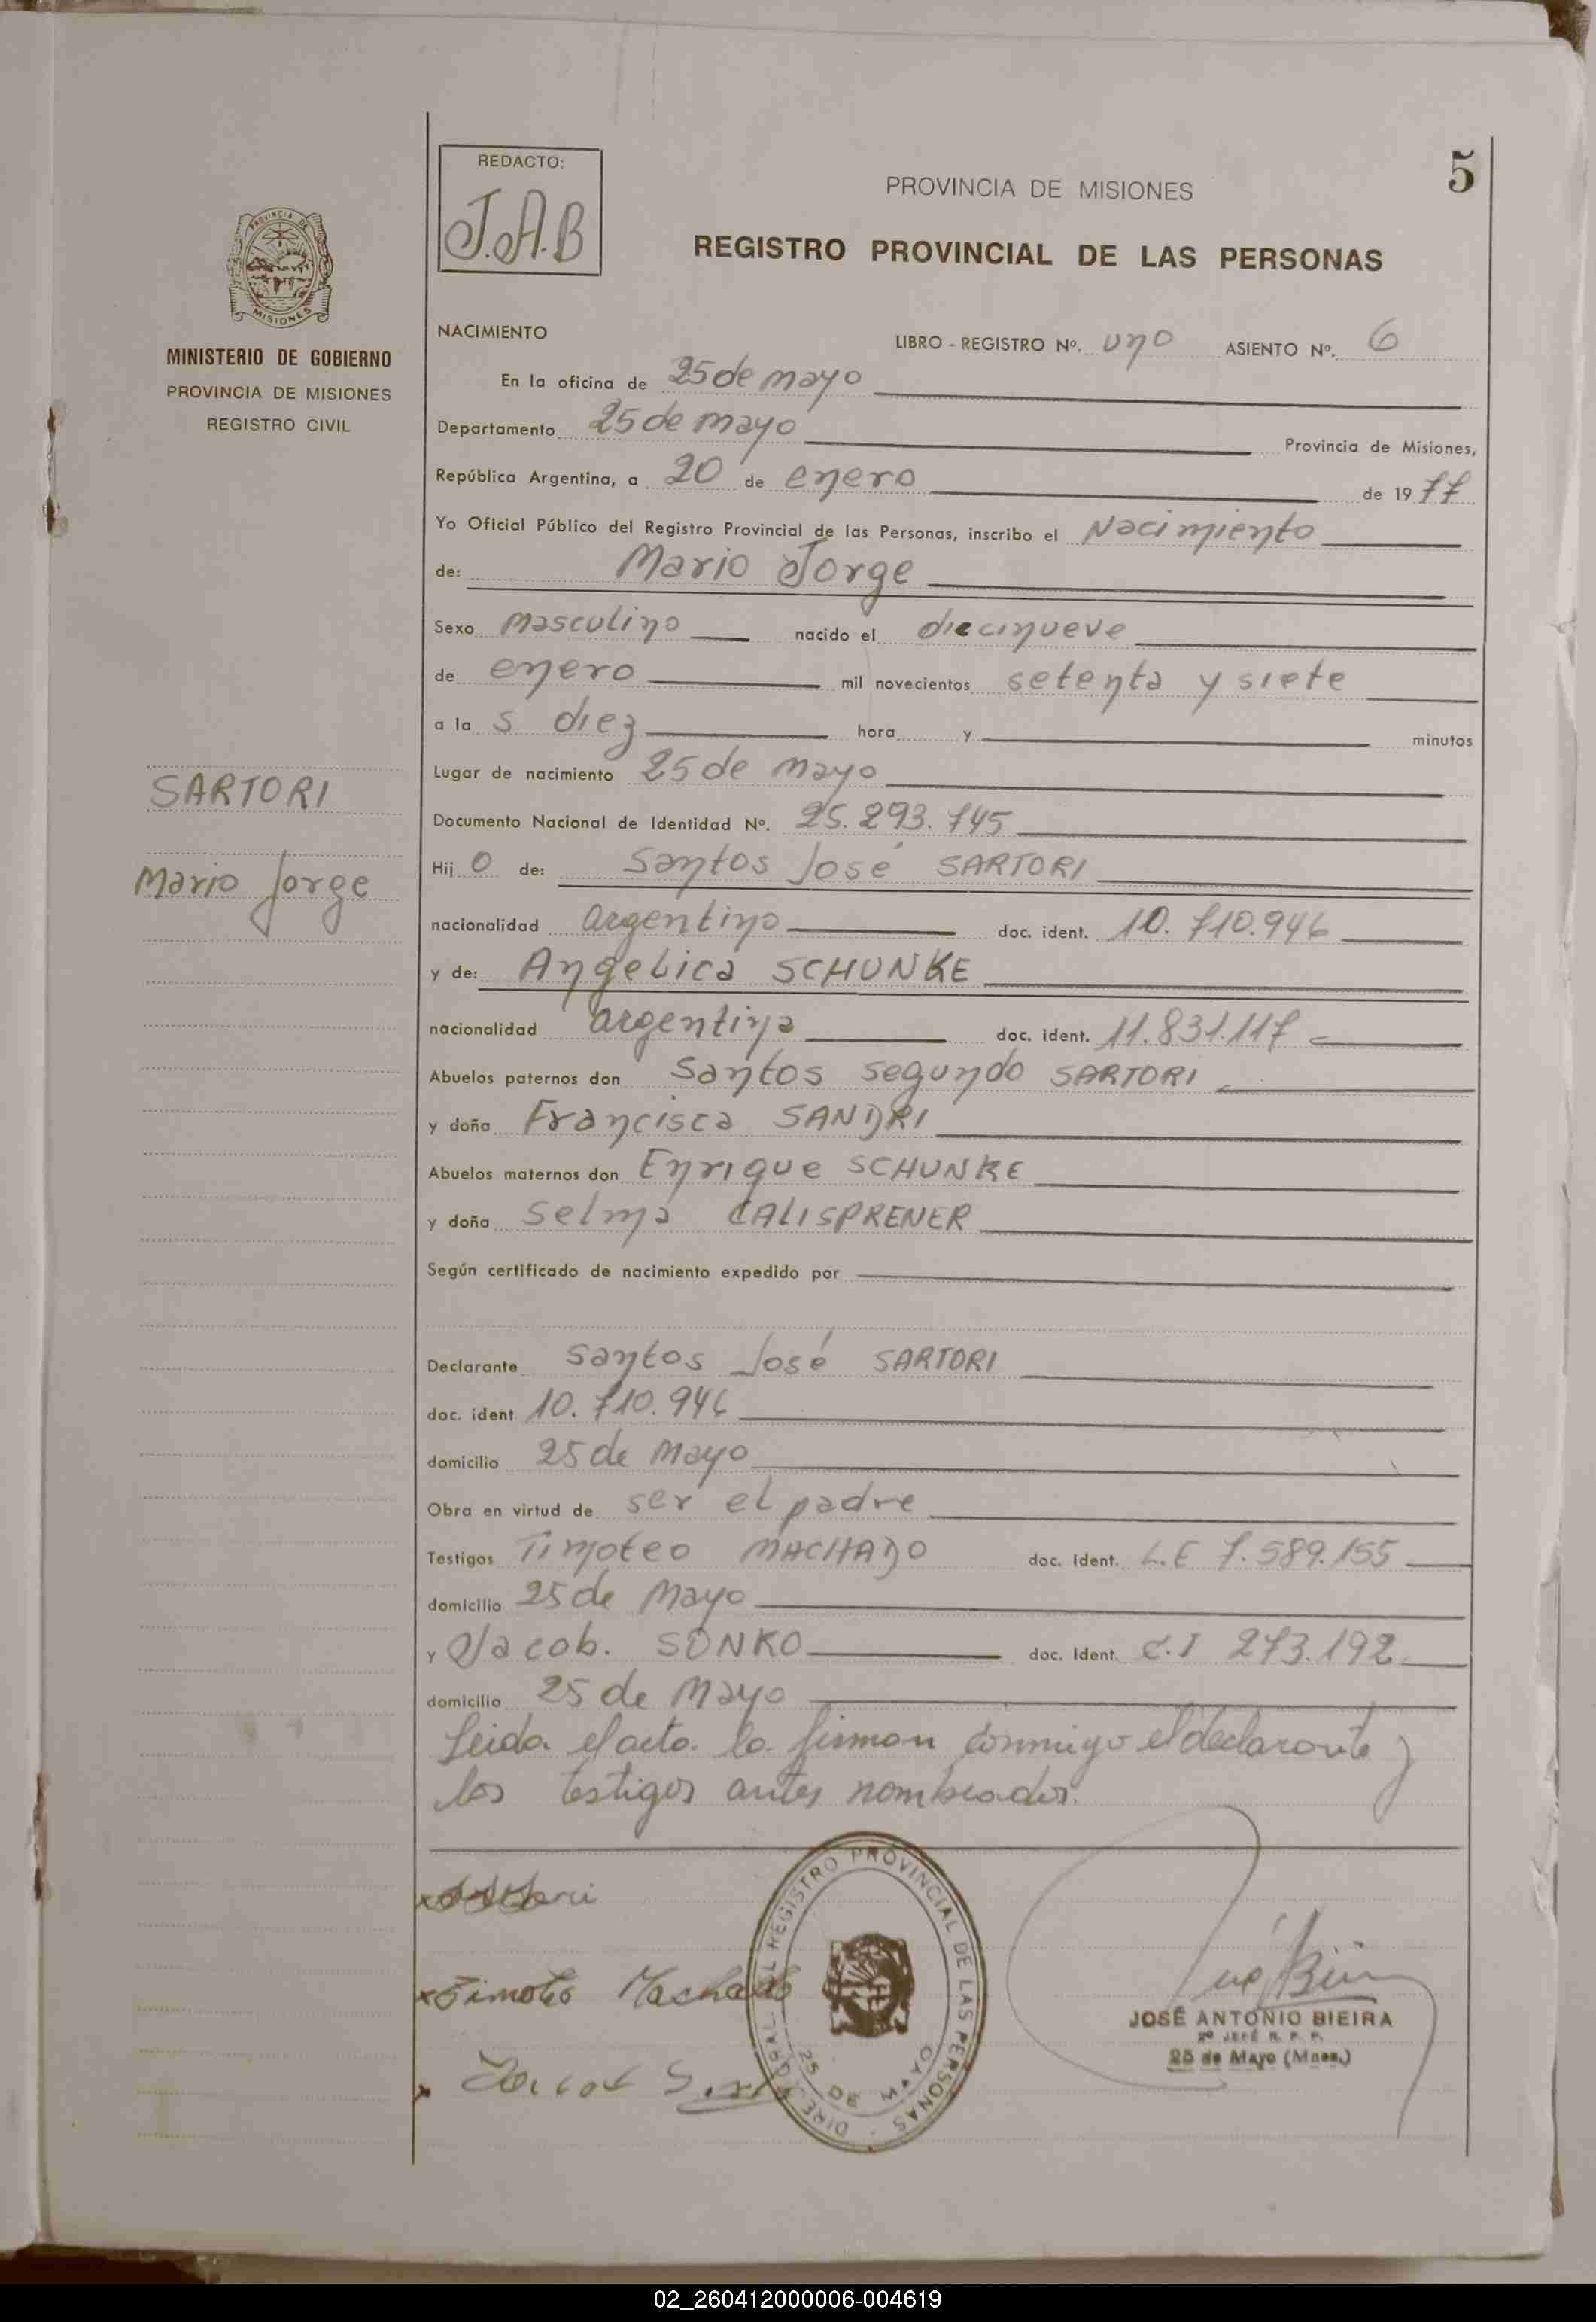 REDACTO:
J.A.B
5
PROVINCIA DE MISIONES
REGISTRO PROVINCIAL DE LAS PERSONAS
PROVINCIA DE
MISIONES
MINISTERIO DE GOBIERNO
PROVINCIA DE MISIONES
REGISTRO CIVIL
NACIMIENTO
LIBRO - REGISTRO Nº. uno ASIENTO Nº. 6
En la oficina de 25 de mayo
Departamento 25 de mayo Provincia de Misiones,
República Argentina, a 20 de enero de 1977
Yo Oficial Público del Registro Provincial de las Personas, inscribo el Nacimiento
de: Mario Jorge
Sexo Masculino nacido el diecinueve
de enero mil novecientos setenta y siete
a la s diez hora y minutos
Lugar de nacimiento 25 de mayo
SARTORI
Mario Jorge
Documento Nacional de Identidad Nº. 25.293.745
Hij o de: Santos José SARTORI
nacionalidad argentino doc. ident. 10.710.946
y de: Angelica SCHUNKE
nacionalidad argentina doc. ident. 11.831.117
Abuelos paternos don Santos Segundo SARTORI
y doña Francisca SANDRI
Abuelos maternos don Enrique SCHUNKE
y doña Selma CALISPRENER
Según certificado de nacimiento expedido por
Declarante Santos José SARTORI
doc. ident 10.710.946
domicilio 25 de Mayo
Obra en virtud de ser el padre
Testigos Timoteo MACHADO doc. ident. L.E 7.589.155
domicilio 25 de Mayo
y Jacob. SONKO doc. Ident. C.I 273.192
domicilio 25 de Mayo
Leida el acta la firman conmigo el declarante y
los testigos antes nombrados.
Timoteo Machado
DIRE GRAL. DEL REGISTRO PROVINCIAL DE LAS PERSONAS
25 DE MAYO
JOSÉ ANTONIO BIEIRA
2º JEFE R. P. P.
25 de Mayo (Mnes.)
02_260412000006-004619